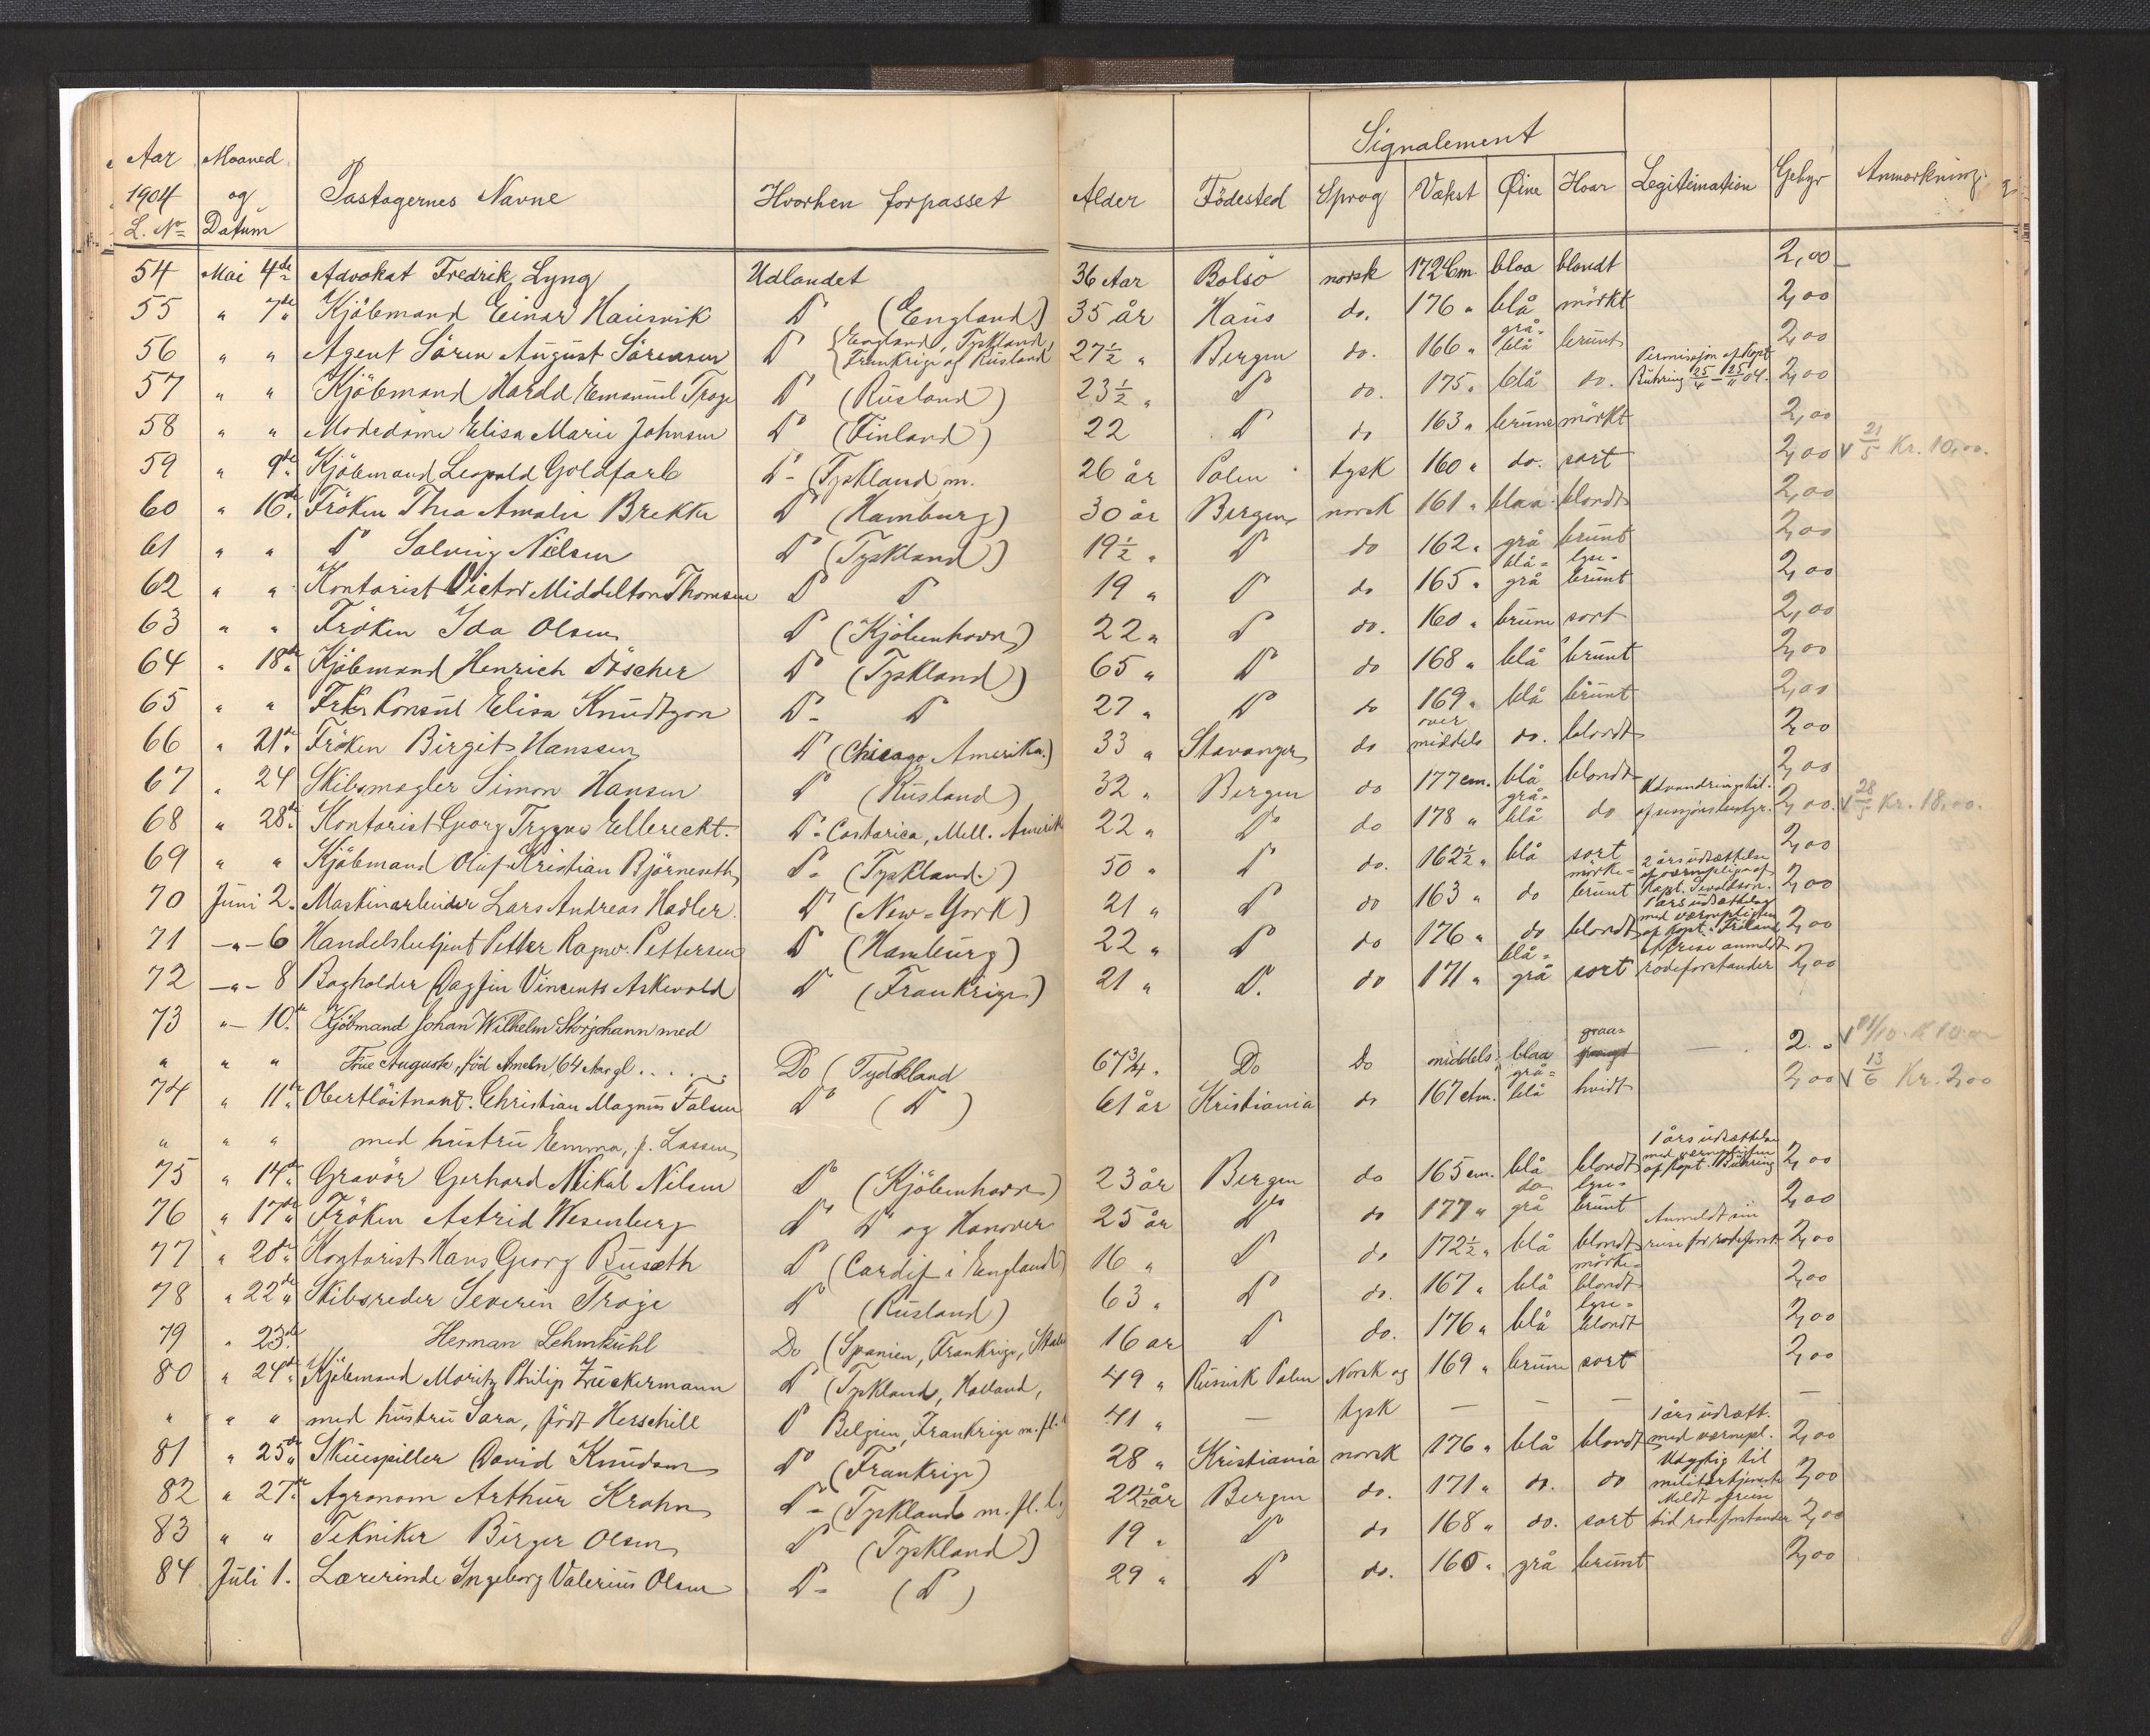 Aar 1904 L. No Maaned og Datum Pastagernes Navne Hvorhen forpasset Alder Födested Signalement Sprog Vækst Öine Haar Legitimation Gebyr Anmærkning.
54 Mai 4de Advokat Fredrik Lyng Udlandet 36 Aar Bolsö norsk 172 Cm blaa blondt 2,00
55 " 7de Kjöbmand Einar Hausvik Do (England) 35 år Haus do. 176 " blå mörkt 2,00
56 " " Agent Sören August Sörensen Do (England, Tyskland, Frankrige og Rusland 27½ " Bergen do. 166 " grå-blå brunt 2,00
57 " " Kjöbmand Harald Emanuel Troye Do (Rusland) 23½ " Do do. 175 " blå do. Permissjon af Kapt. Bühring 25/4 - 25/11 04. 2,00
58 " " Modedame Elisa Marie Johnsen Do (Finland) 22 Do do 163 " brune mörkt 2,00
59 " 9de Kjöbmand Leopold Goldfarb Do - (Tyskland m. 26 år Polen tysk 160 " do. sort 2,00 V 21/5 Kr. 10,00.
60 " 16de Fröken Thea Amalie Brekke Do (Hamburg) 30 år Bergen norsk 161 " blaa blondt 2,00
61 " " Do Solveig Nielsen Do (Tyskland) 19½ " Do do 162 " grå brunt 2,00
62 " " Kontorist Victor Middelton Thomsen Do Do 19 " Do do 165 " blå-grå lyse-brunt 2,00
63 " " Fröken Ida Olsen Do (Kjöbenhavn) 22 " Do do. 160 " brune sort 2,00
64 " 18de Kjöbmand Henrich Döscher Do (Tyskland) 65 " Do do 168 " blå brunt 2,00
65 " " Konsul Elisa Knudtzon Do - Do 27 " Do do 169 " blå brunt 2,00
66 " 21de Fröken Birgit Hanssen Do (Chicago, Amerika.) 33 " Stavanger do over middels do. blondt 2,00
67 " 24 Skibsmægler Simon Hansen Do (Rusland) 32 " Bergen do 177 cm. blå blondt 2,00
68 " 28de Kontorist Georg Trygve Do - Costarica, Mell. Amerik 22 " Do do 178 " grå-blå do Udvandringstil. af 2,00. V 28/5 Kr. 18,00.
69 " " Kjöbmand Oluf Kristian Björneseth Do - (Tyskland.) 50 " Do do. 162½ " blå sort 2,00
70 Juni 2. Maskinarbeider Lars Andreas Hadler. Do (New-York) 21 " Do do 163 " do mörke-brunt 2 års udsættelse af værnepligten af Kapt. 2,00
71 -"- 6 Handelsbetjent Petter Ragnv. Pettersen Do (Hamburg) 22 " Do do 176 " do blondt 1 års udsættelse med værnepligten af Kapt. Fröland 2,00
72 -"- 8 Bogholder Dagfin Vincents Askevold Do (Frankrige) 21 " Do. do 171 " blå-grå sort Afreise anmeldt rodeforstander 2,00
73 "- 10de Kjöbmand Johan Wilhelm Storjohann med
" " " Frue Auguste, föd Ameln, 64 Aar gl. . . . . Do (Tydskland 67¾. Do Do middels blaa graa- — 2. " V
74 " 11te Oberstlöitnant. Christian Magnus Falsen Do (Do) 61 år Kristiania do 167 ctm. grå-blå hvidt 2,00 V 13/6 Kr. 2,00
" " " med hustru Emma, f. Lassen
75 " 14de Gravör Gerhard Mikal Nilsen Do (Kjöbenhavn) 23 år Bergen do 165 cm. blå blondt 1 års udsættelse med værnepligten af Kapt. Bühring 2,00
76 " 17de Fröken Astrid Wesenberg Do Do og Hanover 25 år Do do 177 " grå lyse-brunt 2,00
77 " 20de Kontorist Hans Georg Buseth Do (Cardif i England) 16 " Do do 172½ " blå blondt Anmeldt sin reise for rodeforst. 2,00
78 " 22de Skibsreder Severin Troye Do (Rusland) 63 " Do do. 167 " blå mörke-blondt 2,00
79 " 23de Herman Lehmkuhl Do (Spanien, Frankrige, Itali 16 aar Do do. 176 " blå lyse-blondt 2,00
80 " 24de Kjöbmand Moritz Philip Zuckermann Do (Tyskland, Holland, 49 " Russisk Polen Norsk og 169 " brune sort 2,00
" " " med hustru Sara, födt Herschell Do Belgien, Frankrige m. fl. 41 " — tysk — — — —
81 " 25de Skuespiller David Knudsen Do (Frankrige) 28 " Kristiania norsk 176 " blå blondt 1 års udsætt. med værnepl. 2,00
82 " 27de Agronom Arthur Krohn Do - (Tyskland m. fl. l.) 22½ år Bergen do. 171 " do. do Udygtig til militærtjeneste 2,00
83 " " Tekniker Birger Olsen Do (Tyskland) 19 " Do do 168 " do. sort Meldt afreise til rodeforstander 2,00
84 Juli 1. Lærerinde Ingeborg Valerius Olsen Do - (Do) 29 " Do do. 160 " grå brunt 2,00